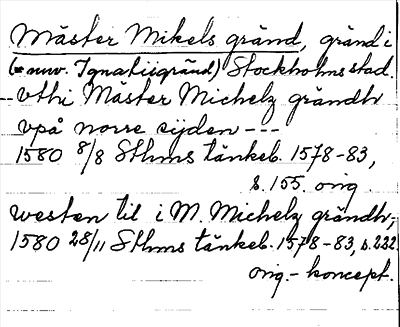 Mäster Mikels gränd, gränd i
(= nuv. Ignatiigränd) Stockholms stad.
-- vthi Mäster Michelz grändh
vpå norre sijden ---
1580 8/8 Sthms tänkeb. 1578-83,
s. 155. orig.
westen til i M. Michelz grändh,-
1580 28/11 Sthms tänkeb. 1578-83, s. 222.
orig.- koncept.